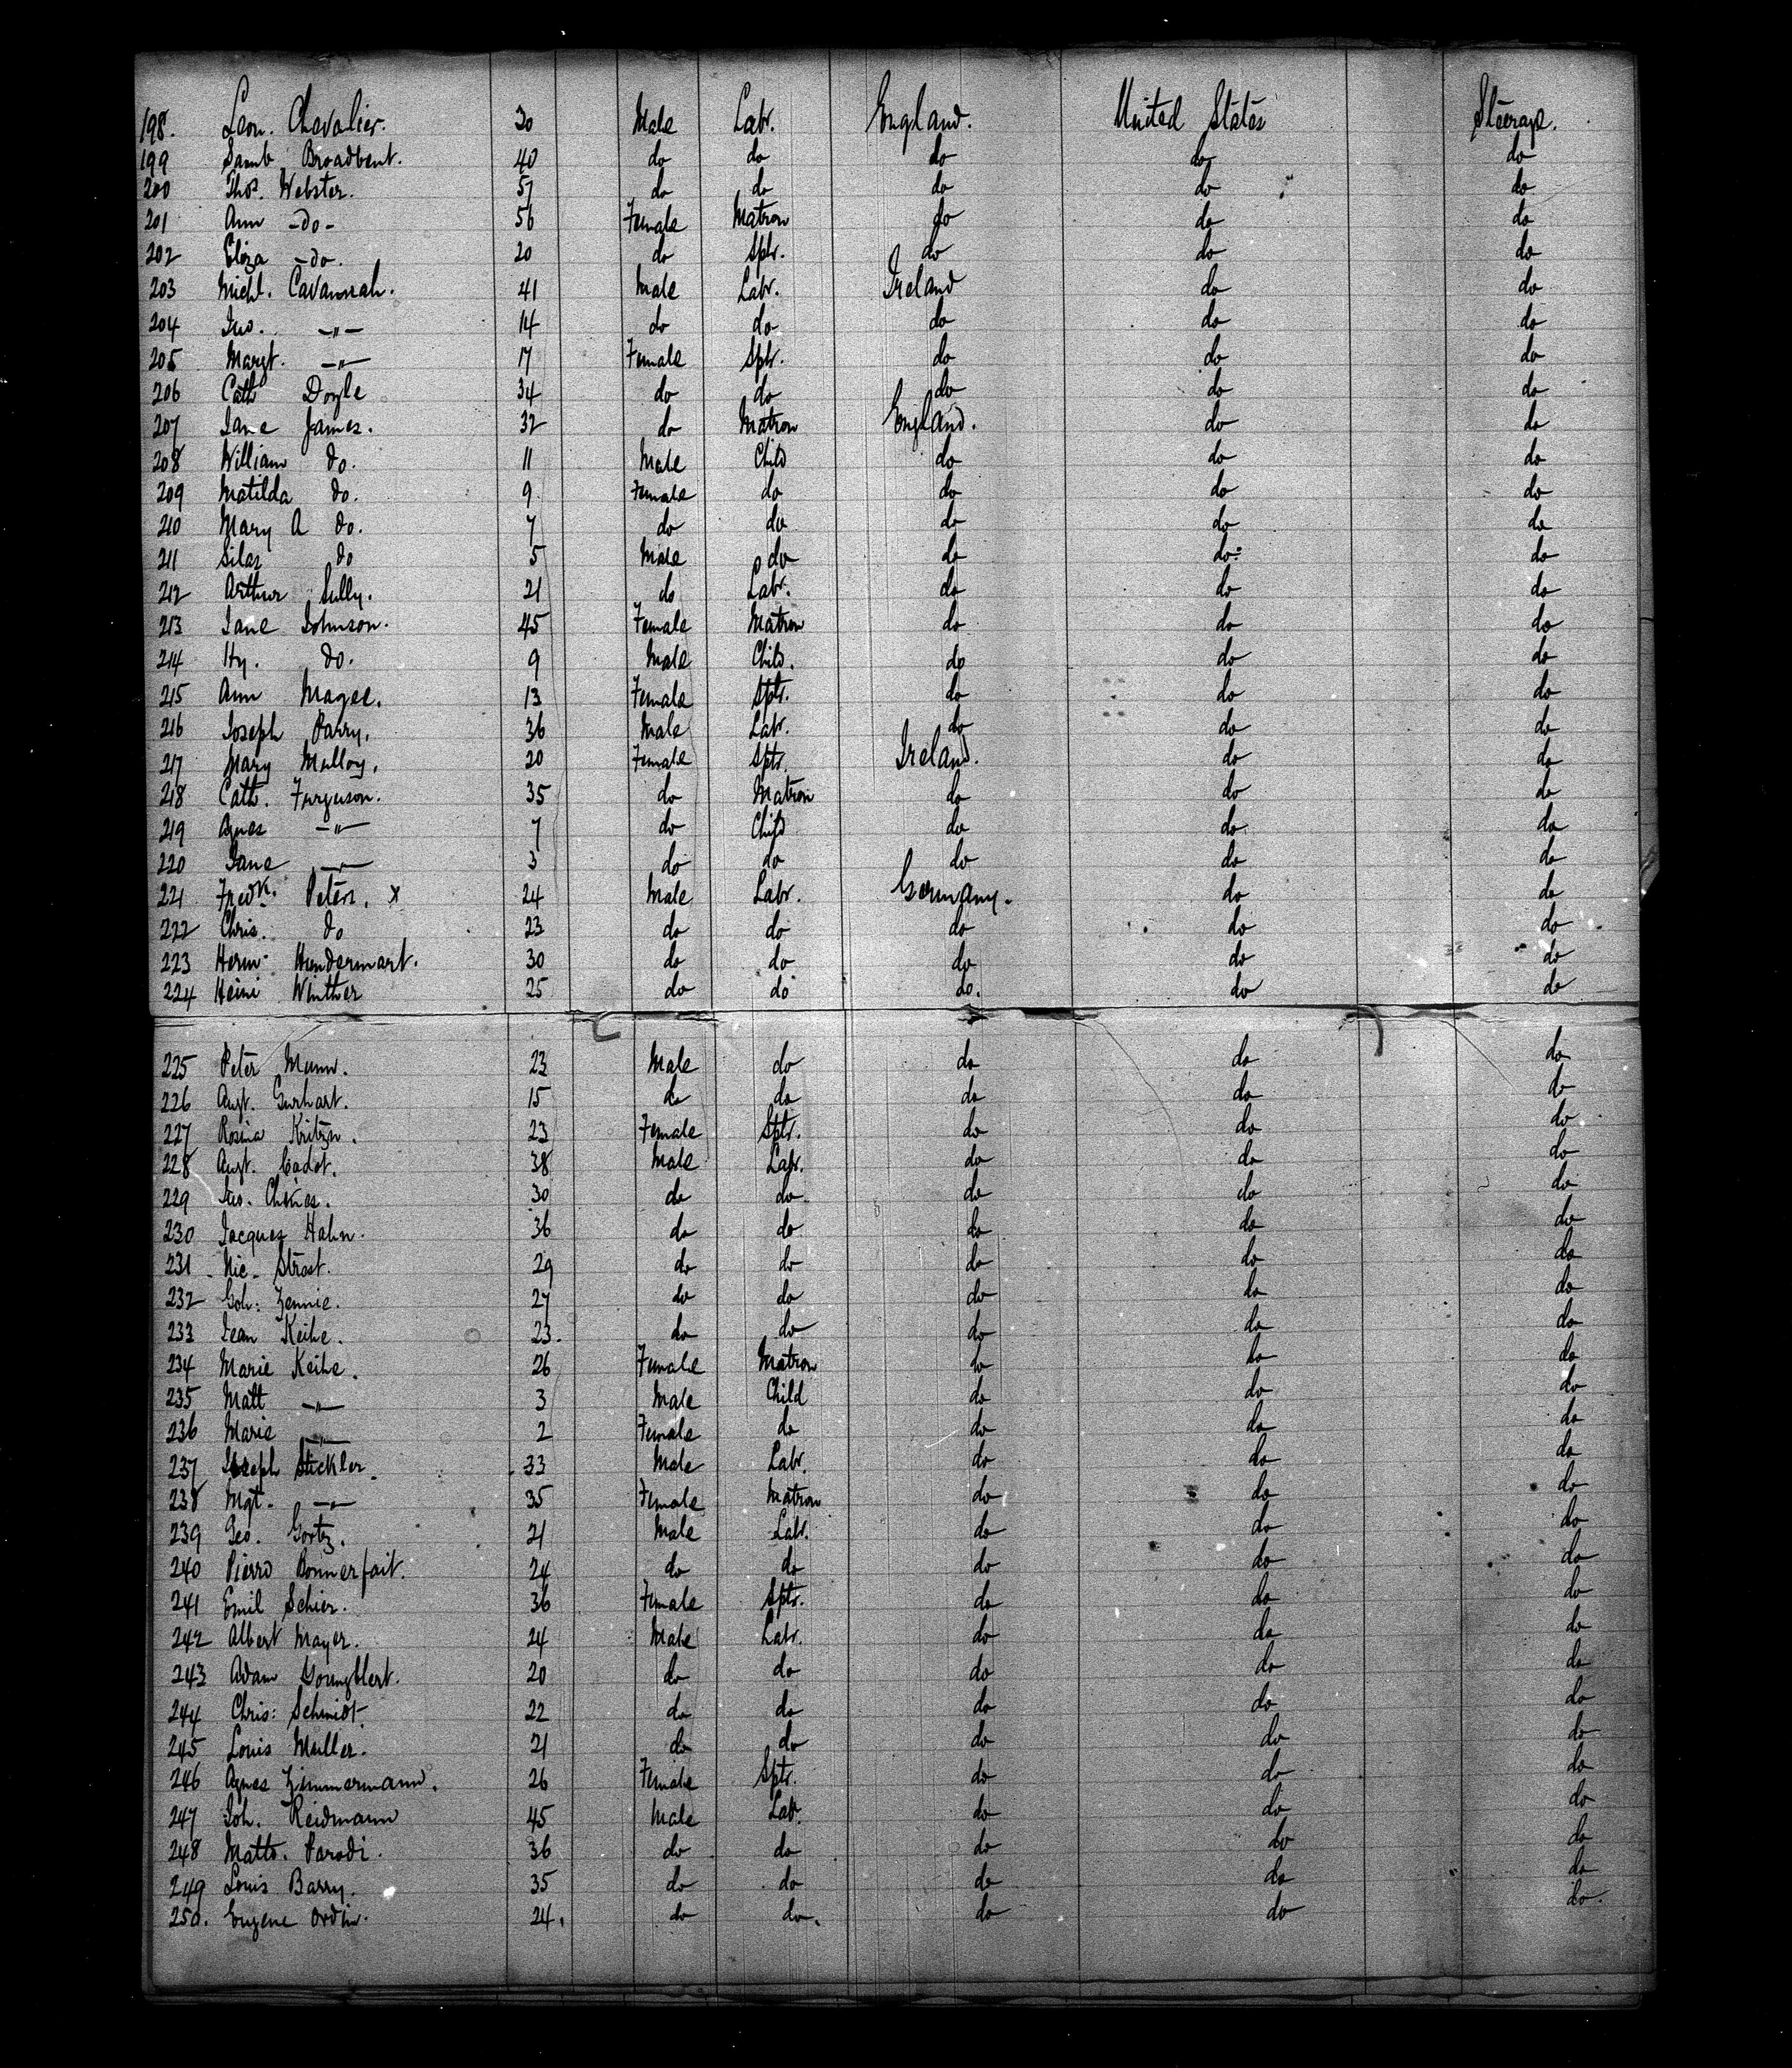 198. Leon. Chevalier. 30 Male Labr. England. United States Steerage.
199 Saml Broadbent. 40 do do do do do
200 Thos. Webster. 57 do do do do do
201 Ann -do- 56 Female Matron do do do
202 Eliza -do- 20 do Sptr. do do do
203 Michl. Cavannah. 41 Male Labr. Ireland do do
204 Jno. -"- 14 do do do do do
205 Margt. -"- 17 Female Sptr. do do do
206 Cath Doyle 34 do do do do do
207 Jane James. 32 do Matron England. do do
208 William do. 11 Male Child do do do
209 Matilda do. 9 Female do do do do
210 Mary A do. 7 do do do do do
211 Silas do 5 Male do do do do
212 Arthur Sully. 21 do Labr. do do do
213 Jane Johnson. 45 Female Matron do do do
214 Hy. do. 9 Male Child. do do do
215 Ann Magee. 13 Female Sptr. do do do
216 Joseph Parry. 36 Male Labr. do do do
217 Mary Mulloy. 20 Female Sptr. Ireland. do do
218 Cath. Furguson. 35 do Matron do do do
219 Agnes -"- 7 do Child do do do
220 Jane -"- 3 do do do do do
221 Fredk. Peters. x 24 Male Labr. Germany. do do
222 Chris. do 23 do do do do do
223 Herm. Hundermart. 30 do do do do do
224 Heini Winther 25 do do do. do do
225 Peter Munn. 23 Male do do do do
226 Augt. Gerhart. 15 do do do do do
227 Rosina Kritzn. 23 Female Sptr. do do do
228 Augt. Cadot. 38 Male Labr. do do do
229 Jno. 30 do do do do do
230 Jacques Hahn. 36 do do do do do
231 Nic. Strost. 29 do do do do do
232 Joh: Zennie. 27 do do do do do
233 Jean Keihe. 23. do do do do do
234 Marie Keihe. 26 Female Matron do do do
235 Matt -"- 3 Male Child do do do
236 Marie -"- 2 Female do do do do
237 Joseph Stickler. 33 Male Labr. do do do
238 Mgt. -"- 35 Female Matron do do do
239 Geo. Gortz. 21 Male Labr. do do do
240 Pierro Bonnerfait. 24 do do do do do
241 Emil Schier. 36 Female Sptr. do do do
242 Albert Mayer. 24 Male Labr. do do do
243 Adam 20 do do do do do
244 Chris: Schmidt. 22 do do do do do
245 Louis Muller. 21 do do do do do
246 Agnes Zimmermann. 26 Female Sptr. do do do
247 Joh. Reidmann 45 Male Labr. do do do
248 Matto. Parodi. 36 do do do do do
249 Louis Barry. 35 do do do do do
250. Eugene Ordin. 24. do do. do do do.